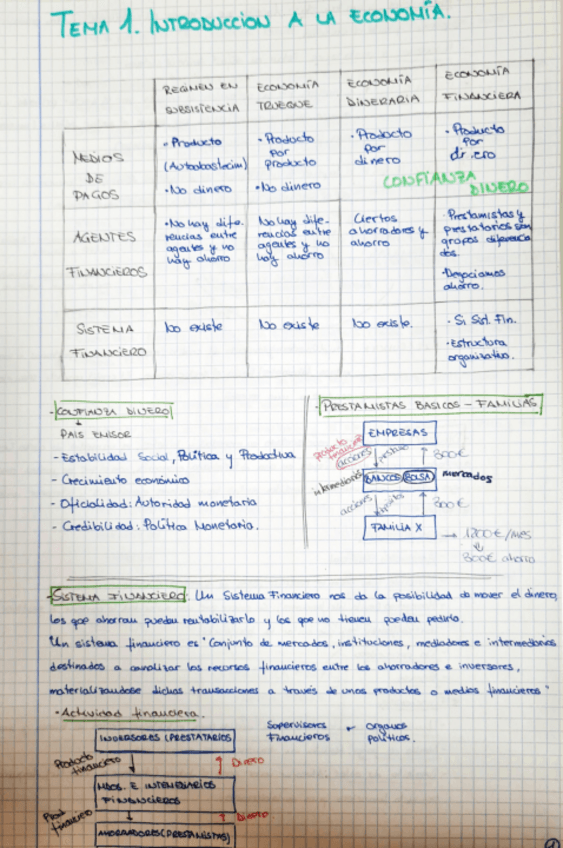 TEMA 1. INTRODUCCION A LA ECONOMÍA.
REGIMEN EN SUBSISTENCIA
ECONOMÍA TRUEQUE
ECONOMÍA DINERARIA
ECONOMÍA FINANCIERA
MEDIOS DE PAGOS
- Producto
(Autoabastecim)
• No dinero
• Producto
por
producto
• No dinero
• Producto
por
dinero
• Producto
por
dinero
CONFIANZA
DINERO
AGENTES
FINANCIEROS
• No hay dife-
rencias entre
agentes y no
hay ahorro
No hay dife-
rencias entre
agentes y no
hay ahorro
Ciertos
ahorradores y
ahorro
• Prestamistas y
prestatarios son
grupos diferencia
dos.
• Negociamos
ahorro.
SISTEMA
FINANCIERO
No existe
No existe
No existe.
• Si Sist. Fin.
• Estructura
organizativa.
- CONFIANZA DINERO
PAIS EMISOR
- Estabilidad Social, Política y Productiva
- Crecimiento económico
- Oficialidad: Autoridad monetaria
- Credibilidad: Política Monetaria.
- PRESTAMISTAS BASICOS - FAMILIAS
EMPRESAS
producto
financiero
acciones
prestamo
800€
intermediarios
BANCOS
BOLSA
mercados
acciones
800€
FAMILIA X
→ 1200€/mes
800€ ahorro
- SISTEMA FINANCIERO: Un Sistema Financiero nos da la posibilidad de mover el dinero,
los que ahorran puedan rentabilizarlo y los que no tienen puedan pedirlo.
Un sistema financiero es "Conjunto de mercados, instituciones, mediadores e intermediarios
destinados a canalizar los recursos financieros entre los ahorradores e inversores,
materializandose dichas transacciones a través de unos productos o medios financieros"
• Actividad financiera.
INVERSORES (PRESTATARIOS
Supervisores
Financieros
← Organos
políticos.
Producto
financiero
↑ Dinero
MDOS. E INTEMEDIARIOS
FINANCIEROS
Prod.
financiero
↑ Dinero.
AHORRADORES (PRESTAMISTAS)
1